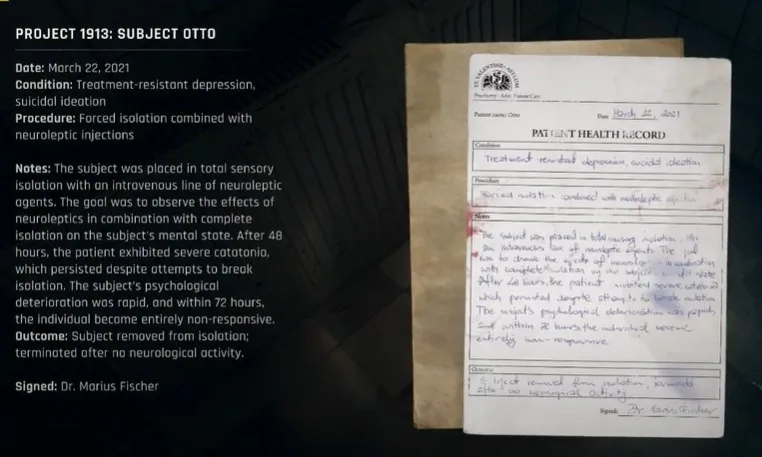 PROJECT 1913: SUBJECT OTTO
Date: March 22, 2021
Condition: Treatment-resistant depression,
suicidal ideation
Procedure: Forced isolation combined with
neuroleptic injections
Notes: The subject was placed in total sensory
isolation with an intravenous line of neuroleptic
agents. The goal was to observe the effects of
neuroleptics in combination with complete
isolation on the subject's mental state. After 48
hours, the patient exhibited severe catatonia,
which persisted despite attempts to break
isolation. The subject's psychological
deterioration was rapid, and within 72 hours,
the individual became entirely non-responsive.
Outcome: Subject removed from isolation;
terminated after no neurological activity.
Signed: Dr. Marius Fischer
ST. VALENTINE ASYLUM
Patient name: Otto
Date March 22, 2021
PATIENT HEALTH RECORD
Condition
Treatment resistant depression, suicidal ideation
Procedure
Forced isolation combined with neuroleptic
Notes
The subject was placed in total sensory isolation
intravenous line of neuroleptic agents. The
was to observe the effects of
with complete isolation on the
After 48 hours, the patient severe
which persisted despite to isolation
The subject's psychological deterioration was rapid,
and within 72 hours the individual
entirely non-responsive
Outcome
removed from isolation,
after no activity
Signed: Dr. Marius Fischer